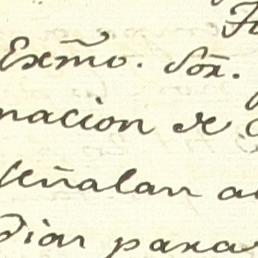 Exmo. Sor.
nacion de
señalan
dian para